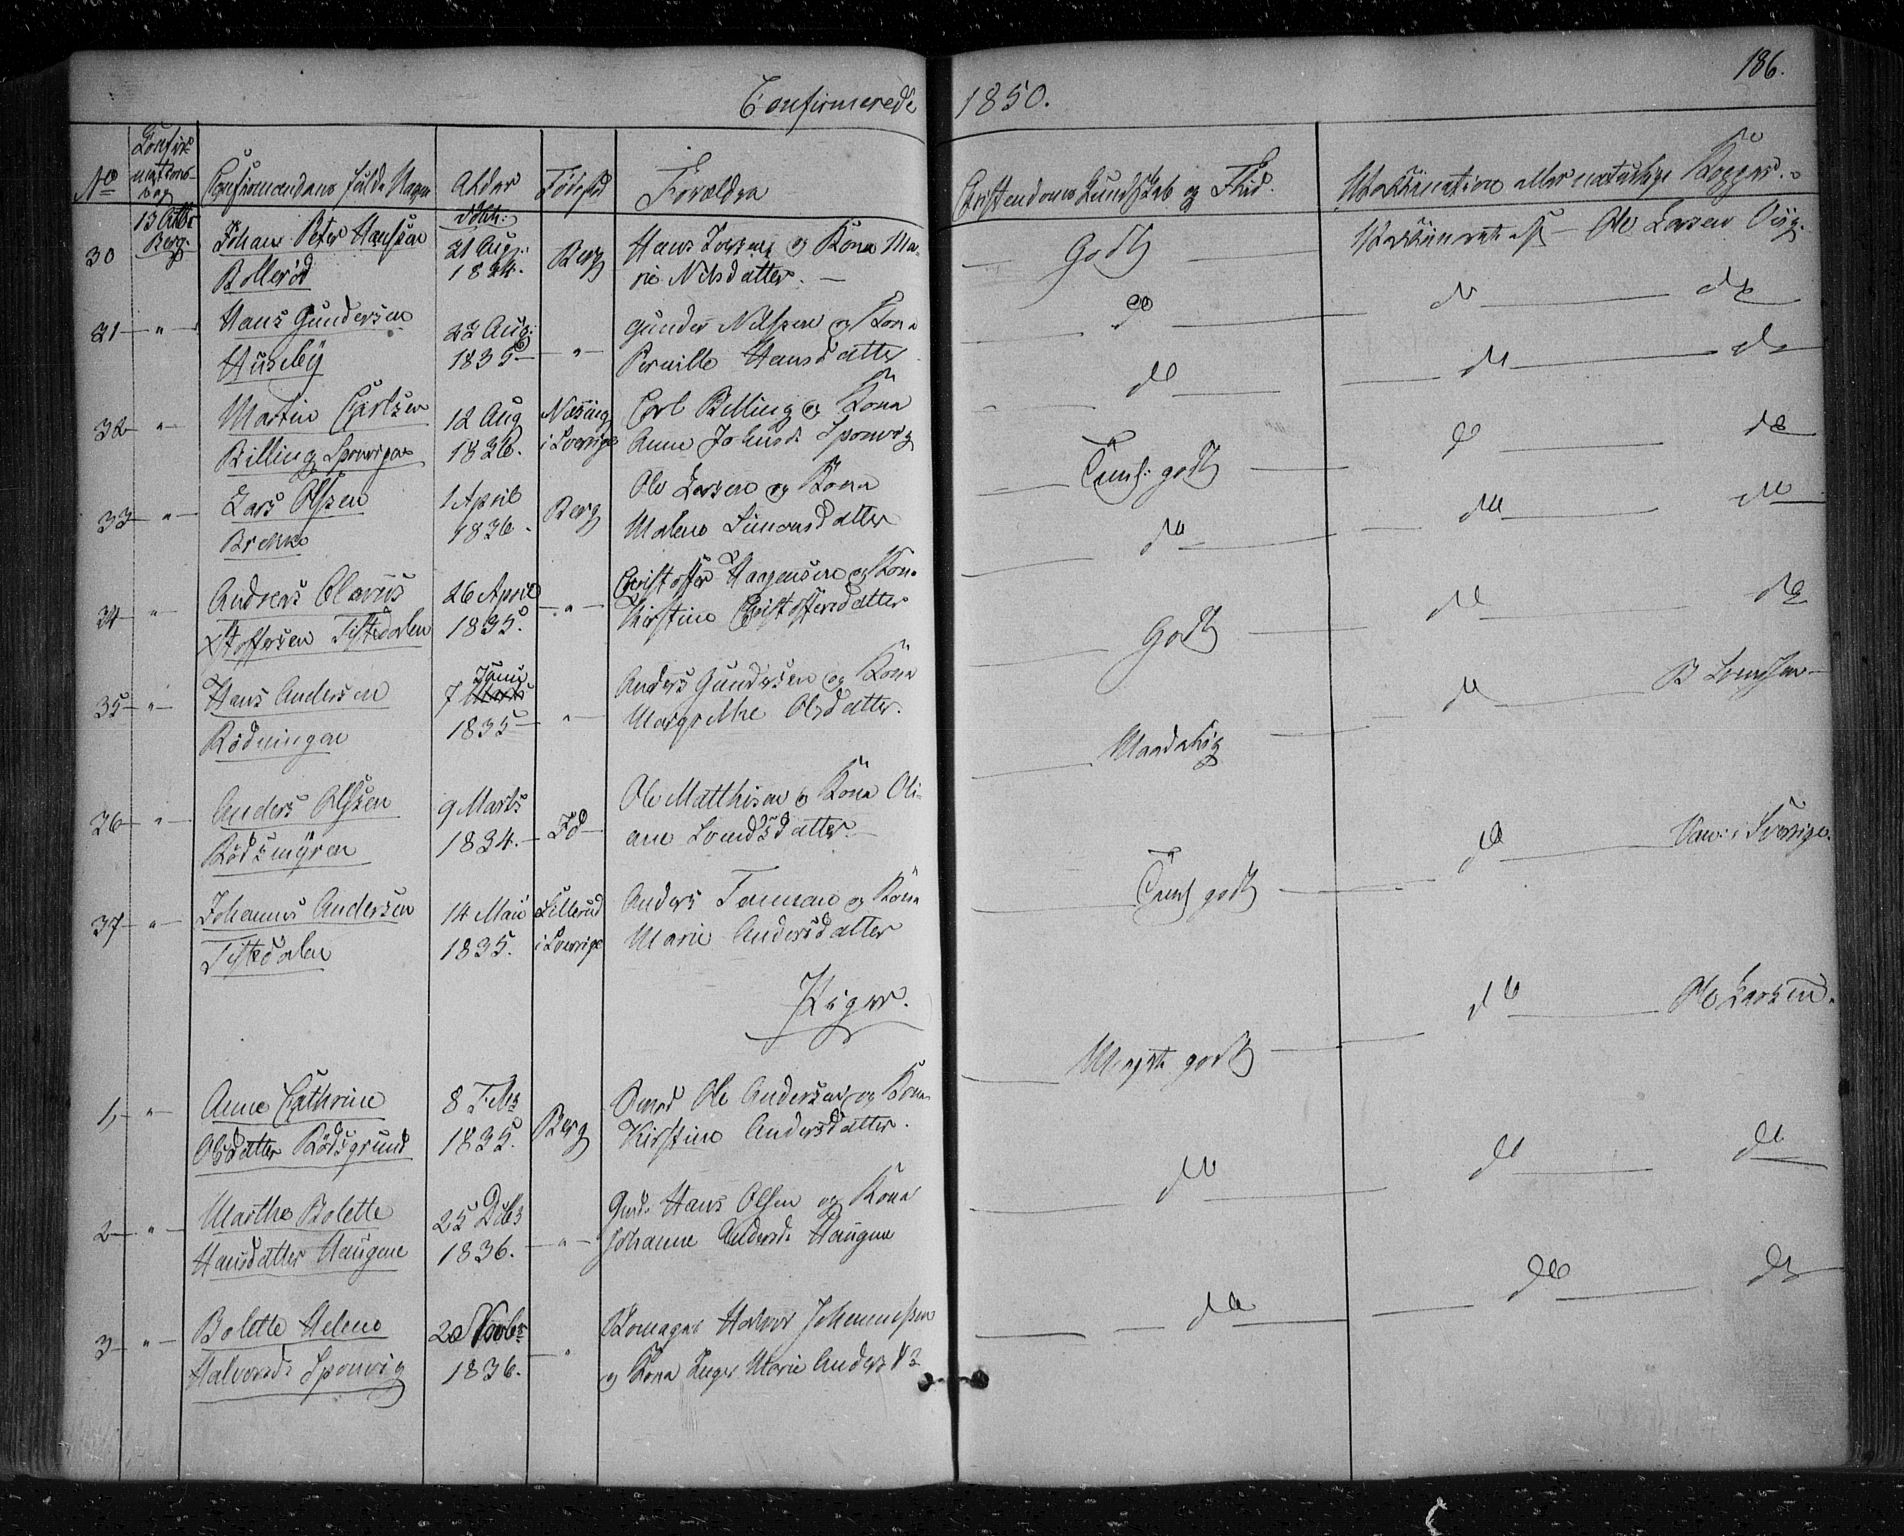 186.
Confirmerede 1850.
No Confirmations dag Confirmandens fulde Navn Alder Fødested Forældre Christendoms Kundskab og Flid. Vaccination eller naturlige Kopper.
30 13 Octbr Berg Johan Peter Hansen 21 Aug: Berg Hans Iversen og Kone Ma- Godt Vaccineret af Ole Larsen
Bollerød 1834. rie Nilsdatter.
31 " Hans Gundersen 22 Aug: " Gunder Nilssen og Kone do do do
Huseby 1835 Pernille Hansdatter
32 " Martin Carlsen 12 Aug Næsinge Carl Billing og Kone do do do
Billing Sponvigen 1836. i Sverrige Anne Johansd: Sponvig
33 " Lars Olssen 1 April Berg Ole Larsen og Kone Temf: godt do do
Brekke 1836. Malene Simonsdatter
34 " Andreas Olavus 26 April " Christoffer Haagensen og Kone do do do
Xstoffersen Tistedalen 1835. Kirstine Christoffersdatter
35 " Hans Andersen 7 Juni " Anders Gundersen og Kone Godt do do
Rödningen 1835 Margrethe Olsdatter.
36 " Anders Olssen 9 Marts Id Ole Mathisen og Kone Oli- Maadelig do B
Rödsmyren 1834. ane Svendsdatter.
37 " Johannes Andersen 14 Mai Sillerud Anders Tonman og Kone Temf godt do Vac: i Sverrige.
Tistedalen 1835. i Sverrige Marie Andersdatter
Piger.
1, " Anne Cathrine 8 Febr Berg Ole Andersen og Kone Meget godt do Ole Larsen.
Olsdatter Rødsgrund 1835. Kirstine Andersdatter.
2 " Marthe Bolette 25 Debr " Gmd. Hans Olsen og Kone do do do
Hansdatter Haugene 1836. Johanne Andersd: Haugene
3 " Bolette Helene 20 Novbr " Skomager Halvor Johannessen do do do
Halvorsd: Sponvig 1836. og Kone Inger Marie Andersd